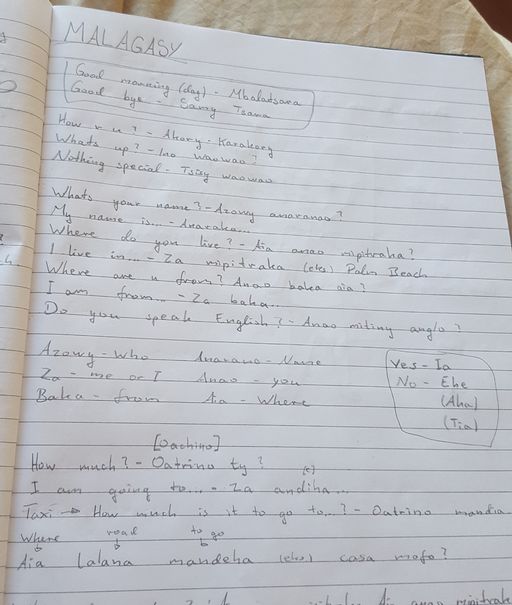 MALAGASY
Good morning (day) - Mbalatsara
Good bye - Samy Tsara
How r u? - Akory - Karakory
Whats up? - Ino waowao?
Nothing special - Tsisy waowao
Whats your name? - Azovy anaranao?
My name is... - Anaraka...
Where do you live? - Aia anao mipitraka?
I live in... - Za mipitraka (eto) Palm Beach
Where are u from? Anao baka aia?
I am from... - Za baka...
Do you speak English? - Anao mitiny anglo?
Azowy - Who Anarano - Name
Za - me or I Anao - you
Baka - from Aia - Where
Yes - Ia
No - Ehe
(Aha)
(Tia)
[Oachino]
How much? - Oatrino ty?
I am going to... - Za andiha...
Taxi → How much is it to go to...? - Oatrino mandia
Where road to go
Aia Lalana mandeha casa mofo?